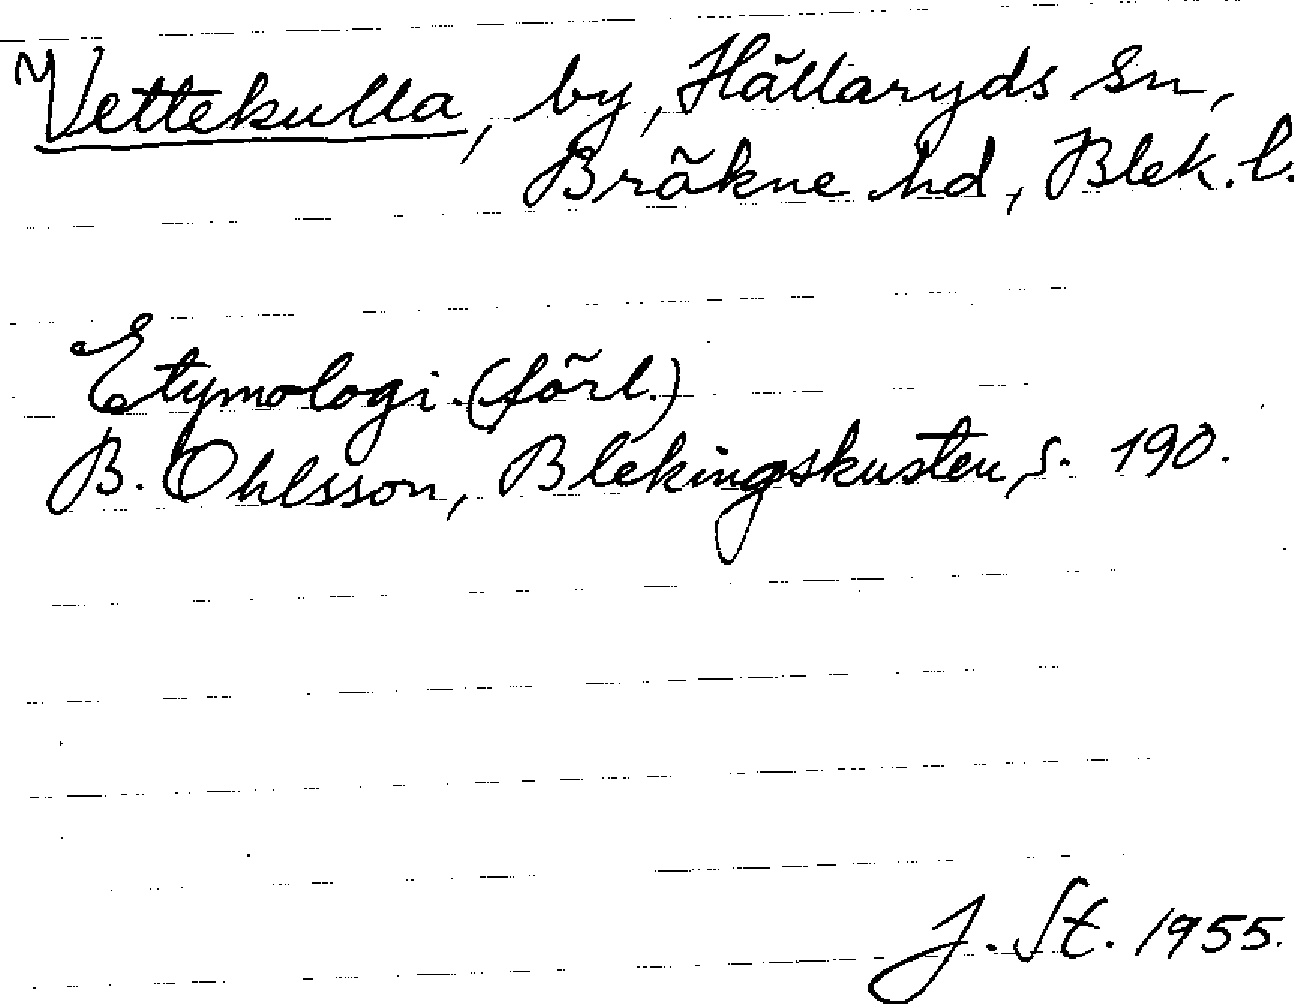 Vettekulla, by, Hällaryds sn,
Bräkne hd, Blek. l.
Etymologi. (förl.)
B. Ohlsson, Blekingskusten, s. 190.
J. St. 1955.